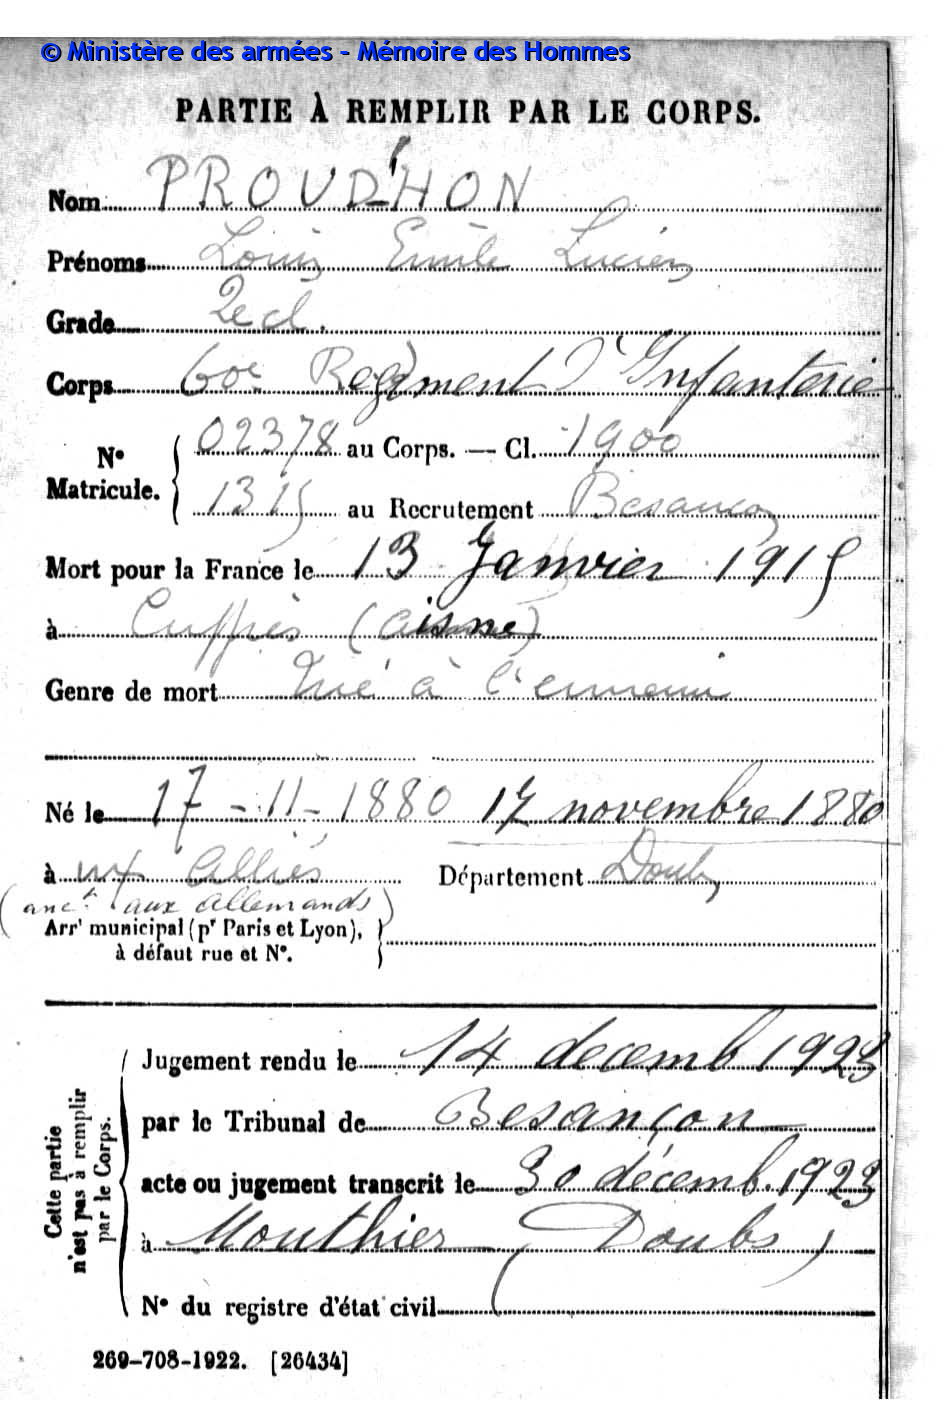 © Ministère des armées - Mémoire des Hommes
PARTIE À REMPLIR PAR LE CORPS.
Nom PROUD'HON
Prénoms Louis Emile Lucien
Grade 2e cl.
Corps 60e Régiment d'Infanterie
N° Matricule. 02378 au Corps. — Cl. 1900
1315 au Recrutement Besançon
Mort pour la France le 13 Janvier 1915
à Cuffiès (Aisne)
Genre de mort Tué à l'ennemi
Né le 17-11-1880 17 novembre 1880
à aux Alliés Département Doubs
(anct. aux Allemands)
Arrt municipal (pr Paris et Lyon),
à défaut rue et N°.
Cette partie n'est pas à remplir par le Corps.
Jugement rendu le 14 décemb 1923
par le Tribunal de Besançon
acte ou jugement transcrit le 30 décemb. 1923
à Mouthier (Doubs)
N° du registre d'état civil
269-708-1922. [26434]